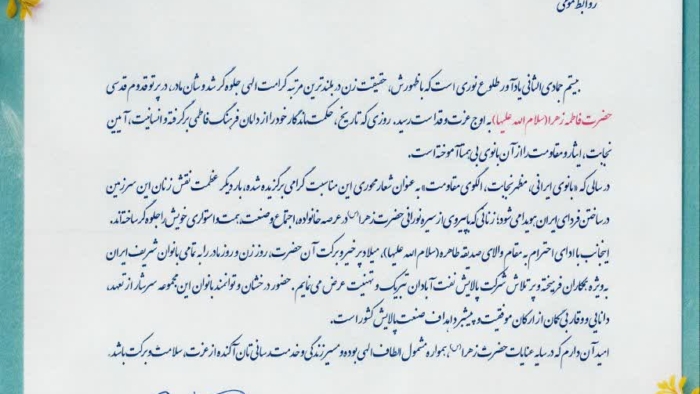 روابط عمومی
بیستم جمادی الثانی یادآور طلوع نوری است که با ظهورش، حقیقت زن در بلندترین مرتبه کرامت الهی جلوه گر شد و شأن مادر، در پرتو قدوم قدسی
حضرت فاطمه زهرا (سلام الله علیها) به اوج عزت و قداست رسید. روزی که تاریخ، حکمت ماندگار خود را از دامان فرهنگ فاطمی برگرفته و انسانیت، آیین
نجابت، ایثار و مقاومت را از آن بانوی بی همتا آموخته است.
در سالی که «بانوی ایرانی، مظهر نجابت، الگوی مقاومت» به عنوان شعار محوری این مناسبت گرامی برگزیده شده، بار دیگر عظمت نقش زنان این سرزمین
در ساختن فردای ایران هویدا می شود؛ زنانی که با پیروی از سیره نورانی حضرت زهرا (س) در عرصه خانواده، اجتماع و صنعت، همت و استواری خویش را جلوه گر ساخته‌اند.
اینجانب با ادای احترام به مقام والای صدیقه طاهره (سلام الله علیها)، میلاد پر خیر و برکت آن حضرت، روز زن و روز مادر را به تمامی بانوان شریف ایران
به ویژه همکاران فرهیخته و پر تلاش شرکت پالایش نفت آبادان تبریک و تهنیت عرض می نمایم. حضور درخشان و توانمند بانوان این مجموعه سرشار از تعهد،
دانایی و وقار بی گمان از ارکان موفقیت و پیشبرد اهداف صنعت پالایش کشور است.
امید آن دارم که در سایه عنایات حضرت زهرا (س)، همواره مشمول الطاف الهی بوده و مسیر زندگی و خدمت رسانی تان آکنده از عزت، سلامت و برکت باشد.